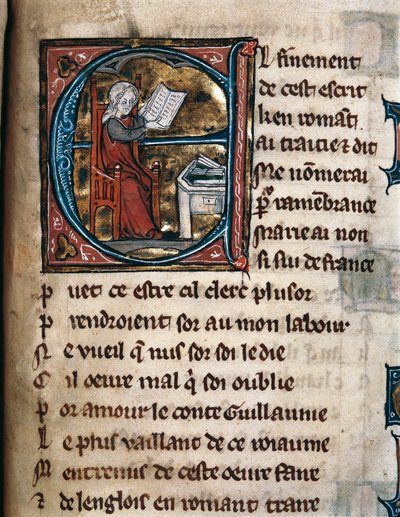 El finement
de cest escrit
k'en romant
ai traitie ⁊ dit
Me nōmerai
p̲ ramēbrance
Marie ai non
si sui de france
Puet ce estre cil clerc plusor
Prendroient sor au mon labour
Ne vueil q̄ nus sor soi le die
Cil oeure mal q̄ soi oublie
Por amour le conte Guillaume
Le plus vaillant de ce roiaume
Mentremis de ceste oeure faire
⁊ de lenglois en romant traire